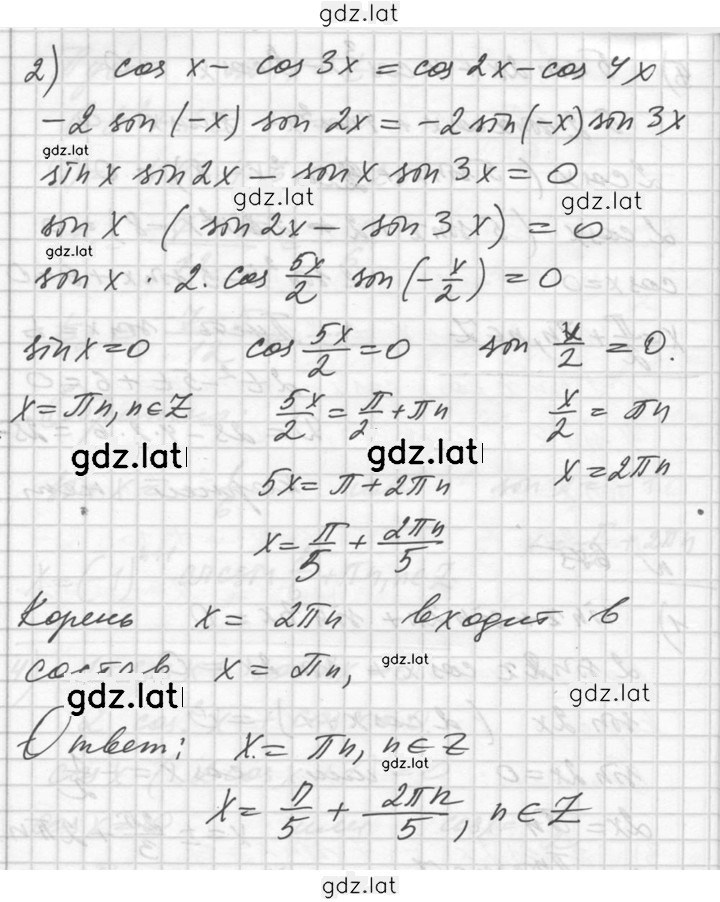 gdz.lat
2) cos x - cos 3x = cos 2x - cos 4x
-2 sin (-x) sin 2x = -2 sin(-x) sin 3x
gdz.lat
sin x sin 2x - sin x sin 3x = 0
gdz.lat gdz.lat
sin x (sin 2x - sin 3x) = 0
gdz.lat
sin x · 2 · cos 5x/2 sin(-x/2) = 0
sin x = 0 cos 5x/2 = 0 sin x/2 = 0.
x = πn, n ∈ Z 5x/2 = π/2 + πn x/2 = πn
gdz.lat gdz.lat
5x = π + 2πn x = 2πn
x = π/5 + 2πn/5
Корень x = 2πn входит в
состав x = πn,
gdz.lat
gdz.lat gdz.lat
Ответ: x = πn, n ∈ Z
gdz.lat
x = π/5 + 2πn/5, n ∈ Z
gdz.lat